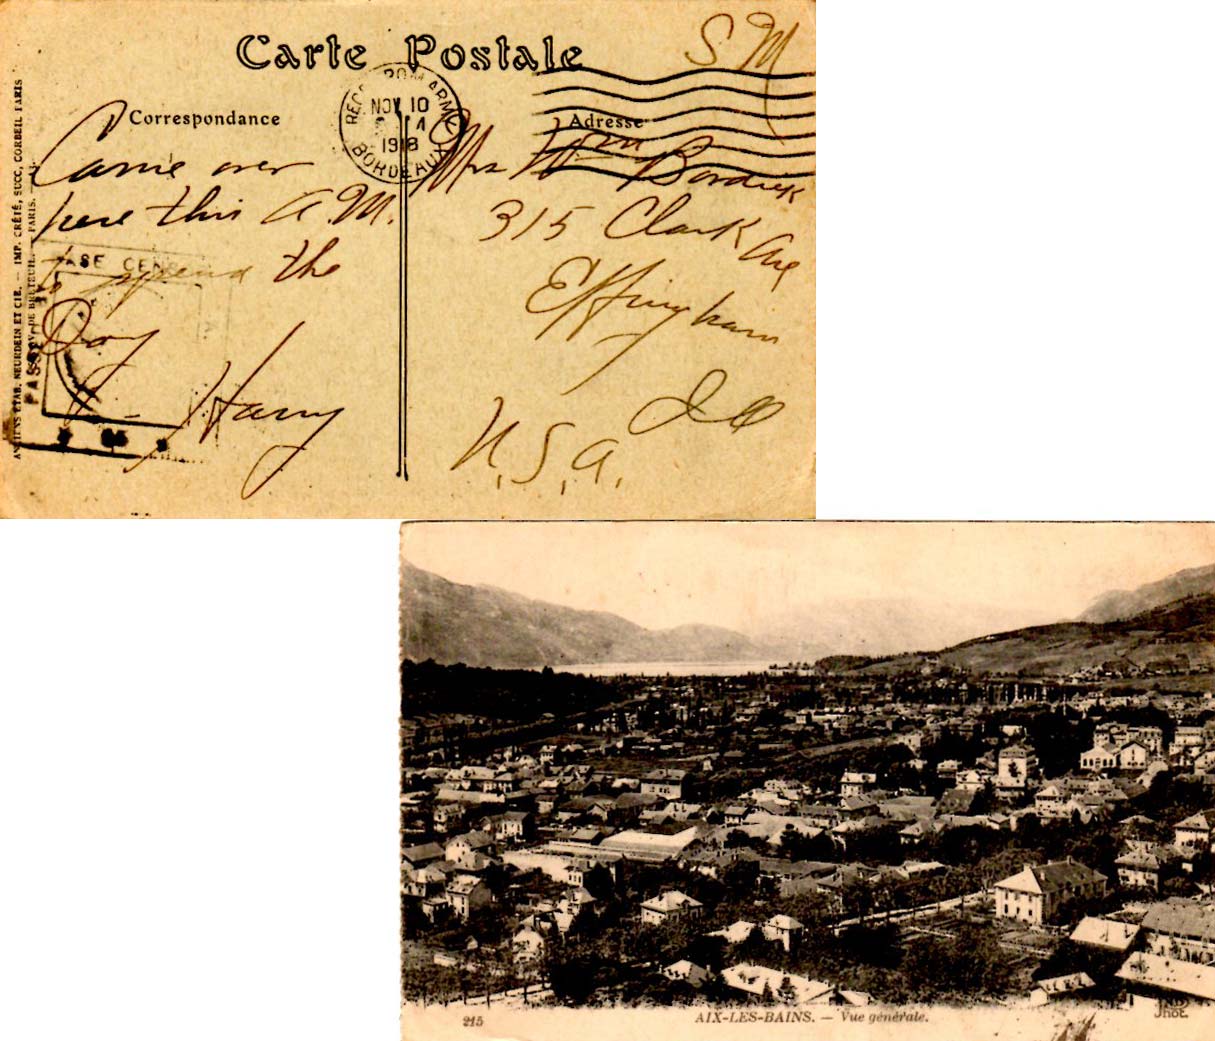 Carte Postale
S M
Correspondance
Adresse
NOV 10
1918
BORDEAUX
Came over
here this A.M.
to spend the
Day
Harry
Mrs Wm
315 Clark Ave
Effingham
Ill
U.S.A.
PASSED
CENSOR
ANCIENS ETAB. NEURDEIN ET CIE. — IMP. CRÉTÉ, SUCC, CORBEIL PARIS
DE BRETEUIL. — PARIS.
215
AIX-LES-BAINS. — Vue générale.
ND
Phot.